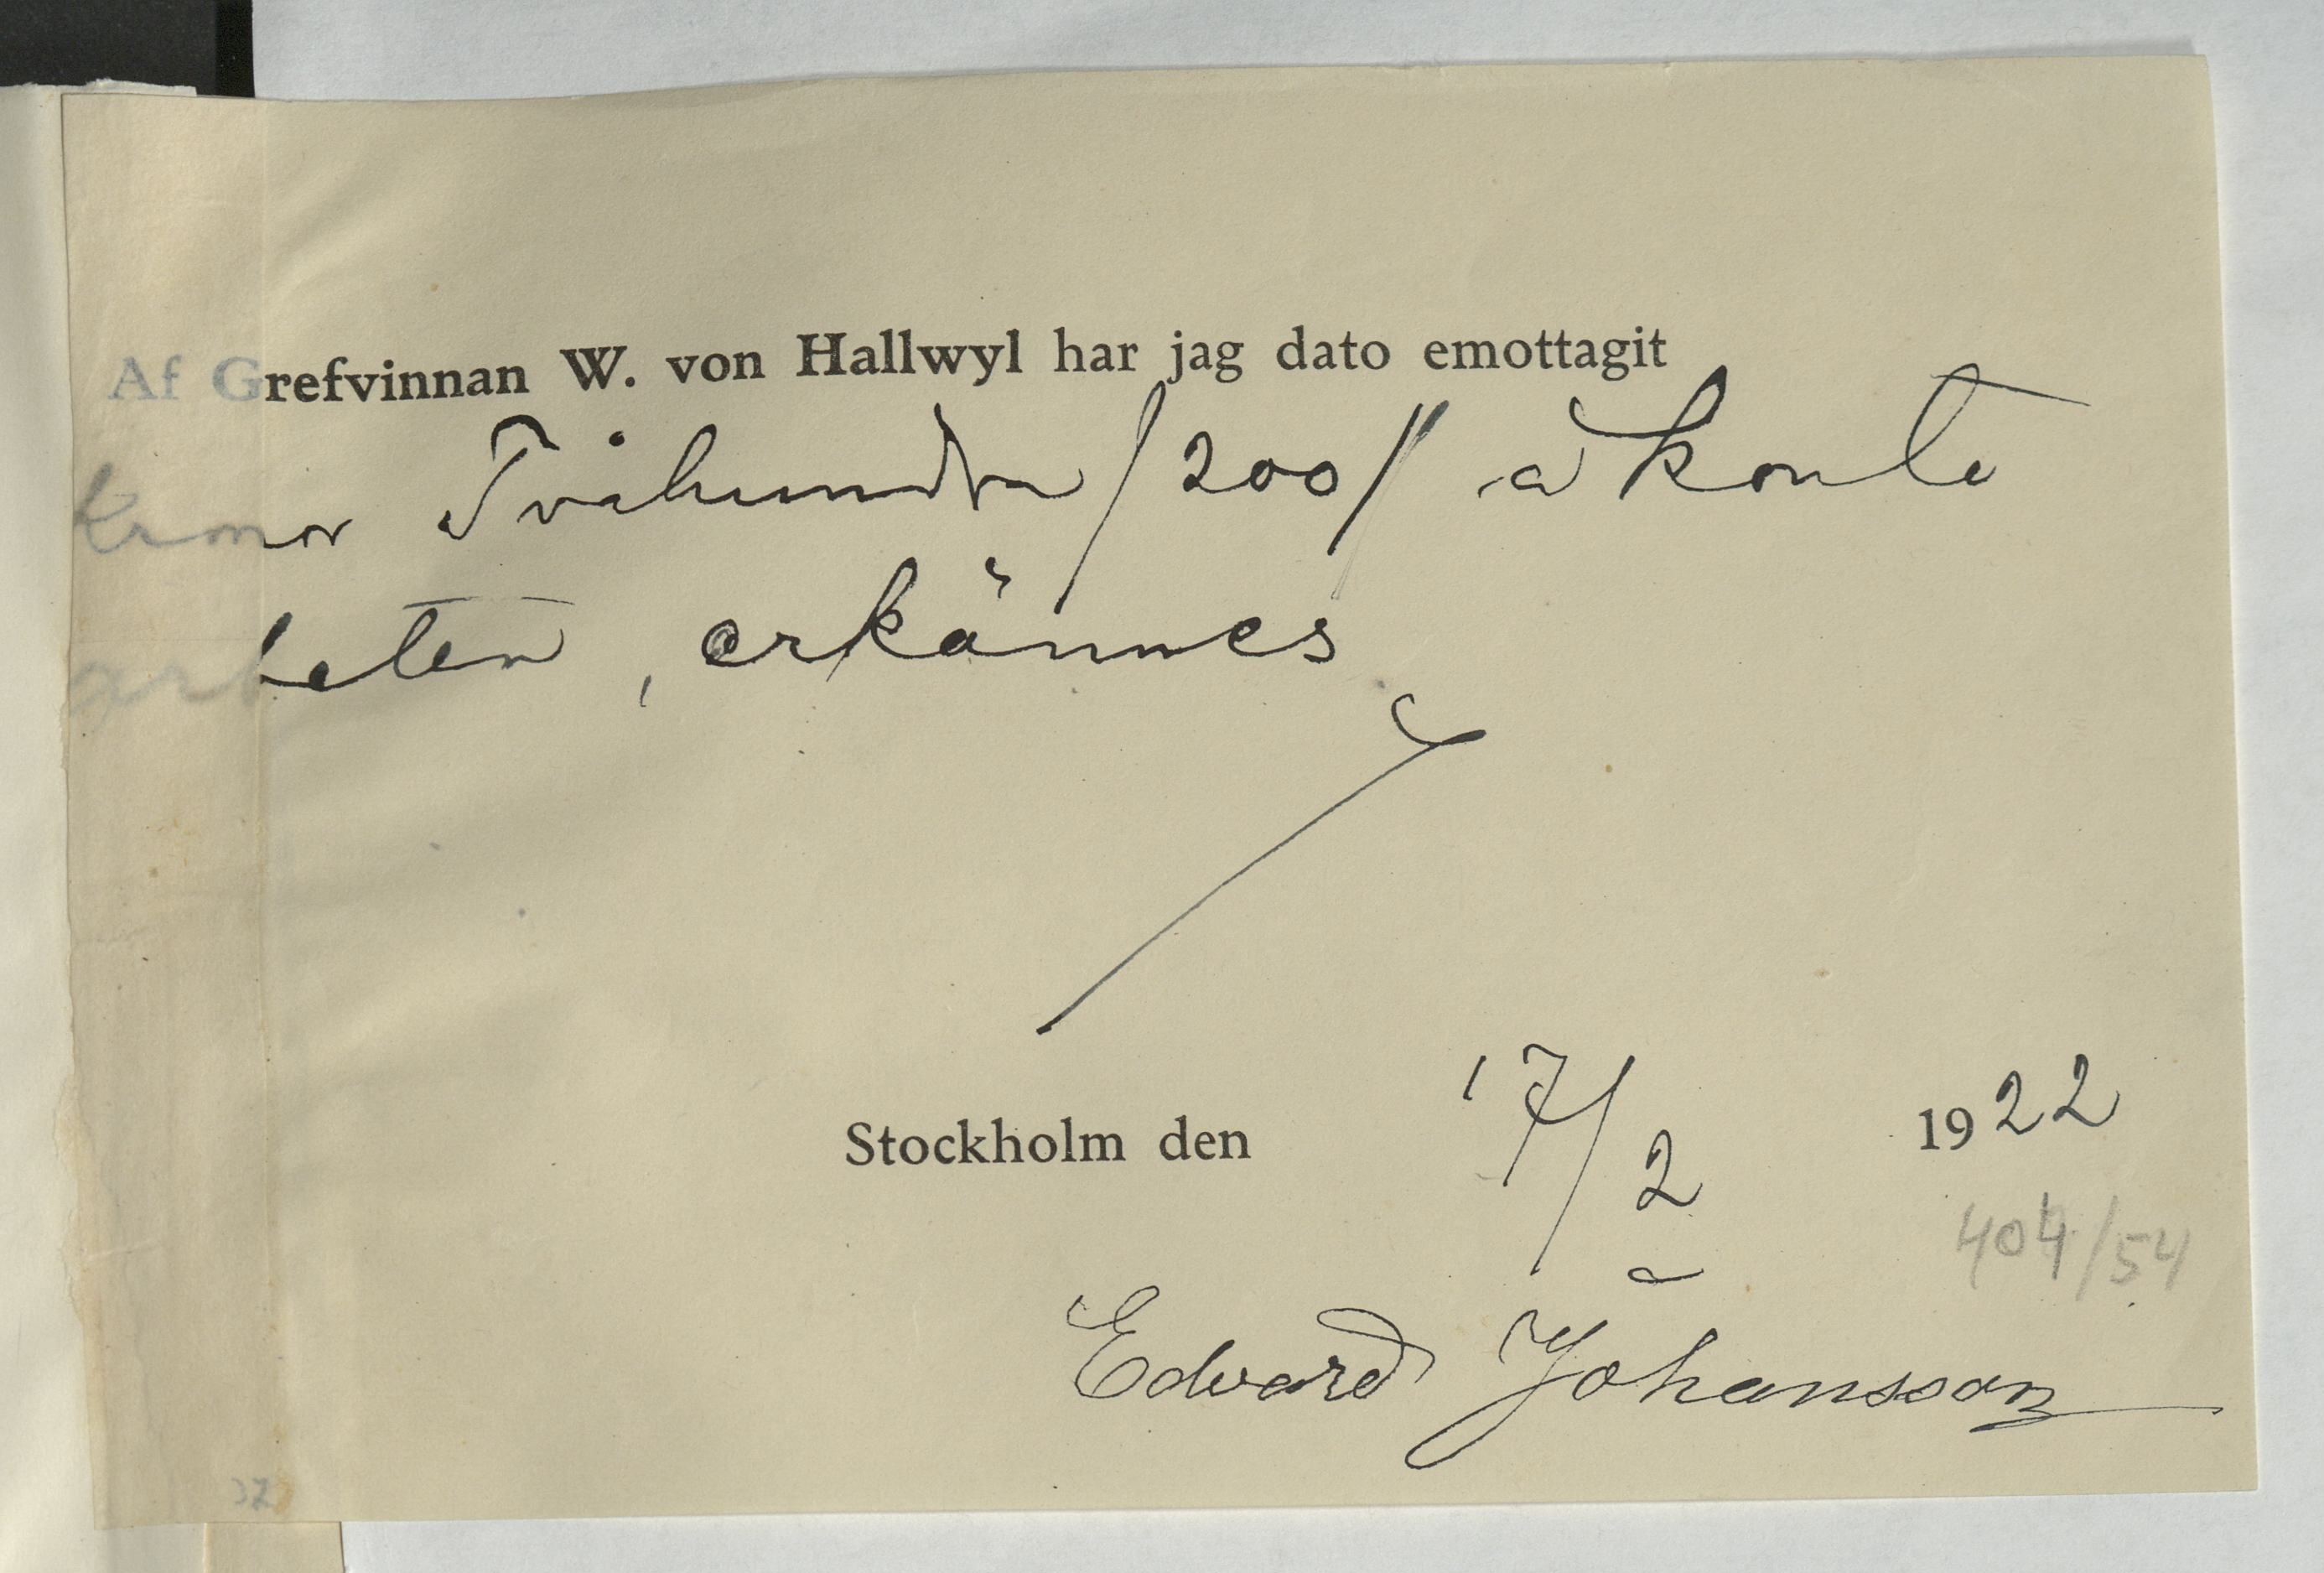 Af Grefvinnan W. von Hallwyl har jag dato emottagit
Kronor Tvåhundra /200/ à konto
arbeten, erkännes
Stockholm den 17/2 1922
404/54
Edvard Johansson
37